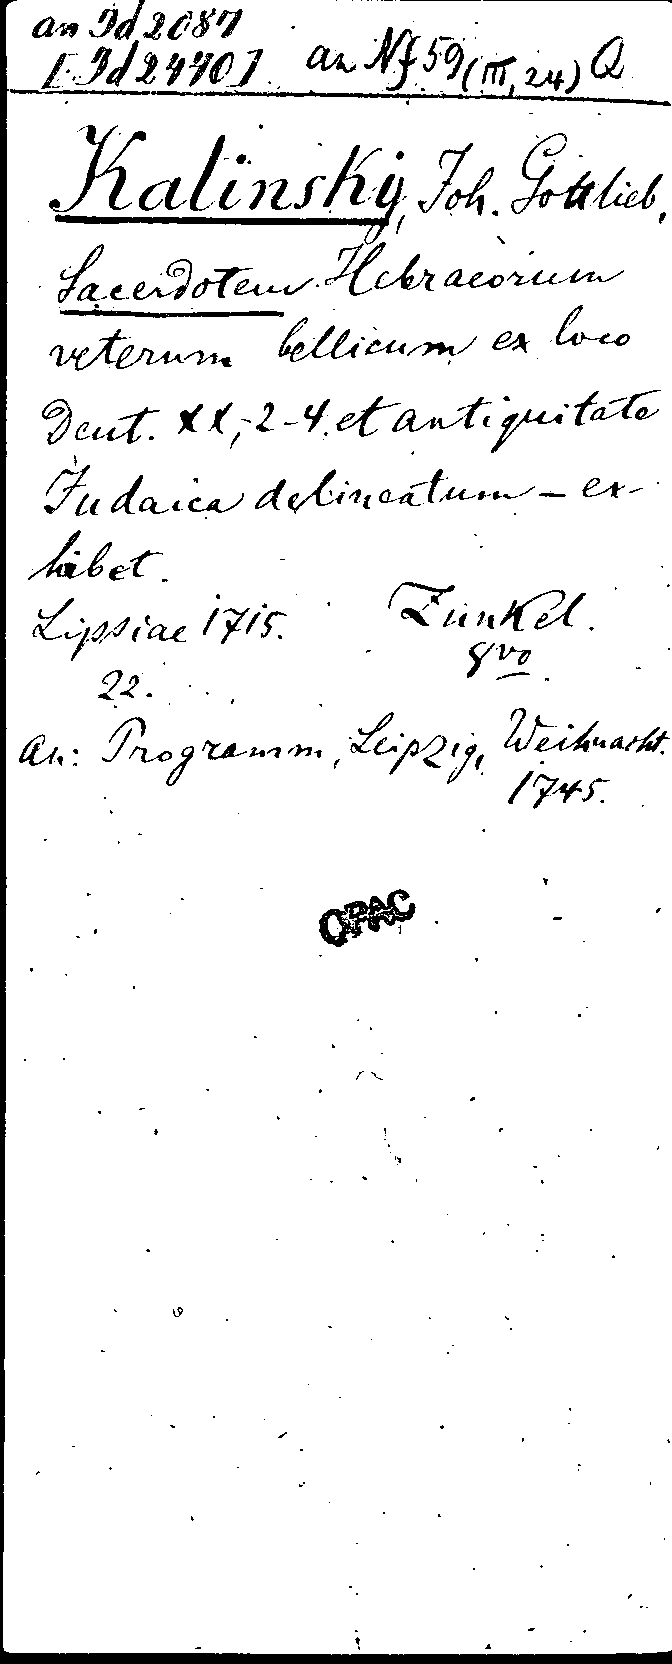 an Id 2087
[Id 2470] an Nf 59 (III, 24) Q
Kalinsky, Joh. Gottlieb,
Sacerdotem Hebraeorum
veterum bellicum ex loco
Deut. XX, 2-4. et antiquitate
Judaica delineatum - ex-
hibet.
Lipsiae 1715. Zunkel.
8vo
22.
An: Programm, Leipzig, Weihnacht.
1745.
OPAC